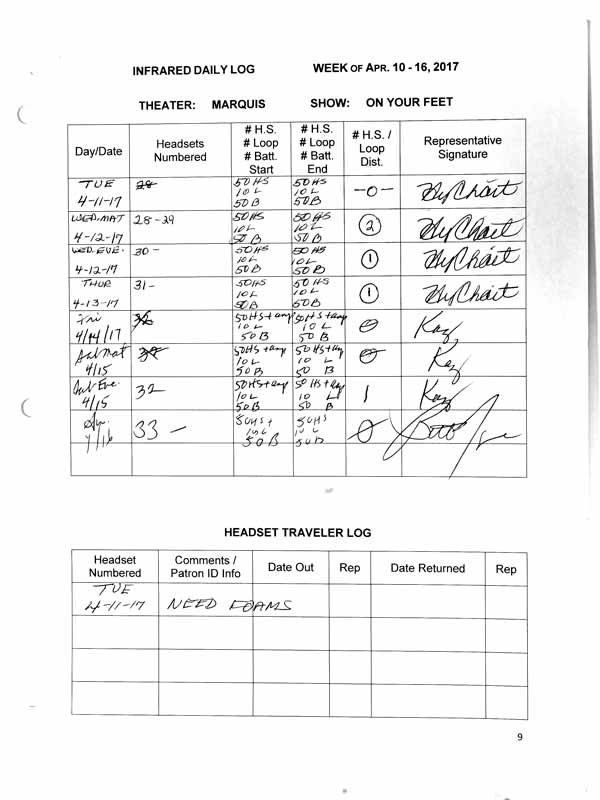 INFRARED DAILY LOG WEEK OF APR. 10 - 16, 2017
THEATER: MARQUIS SHOW: ON YOUR FEET
Day/Date Headsets Numbered # H.S. # Loop # Batt. Start # H.S. # Loop # Batt. End # H.S. / Loop Dist. Representative Signature
TUE 4-11-17 28 50 HS 10 L 50 B 50 HS 10 L 50 B -0-
WED. MAT 4-12-17 28-29 50 HS 10 L 50 B 50 HS 10 L 50 B 2
WED. EVE. 4-12-17 30- 50 HS 10 L 50 B 50 HS 10 L 50 B 1
THUR 4-13-17 31- 50 HS 10 L 50 B 50 HS 10 L 50 B 1
Fri 4/14/17 50 HS + amp 10 L 50 B 50 HS + amp 10 L 50 B 0 Kaz
Sat Mat 4/15 50 HS + amp 10 L 50 B 50 HS + amp 10 L 50 B 0 Kaz
Sat Eve. 4/15 32 50 HS + amp 10 L 50 B 50 HS + amp 10 L 50 B 1 Kaz
33 - 50 HS + 50 B 50 HS 50 B 0
HEADSET TRAVELER LOG
Headset Numbered Comments / Patron ID Info Date Out Rep Date Returned Rep
TUE 4-11-17 NEED FOAMS
9